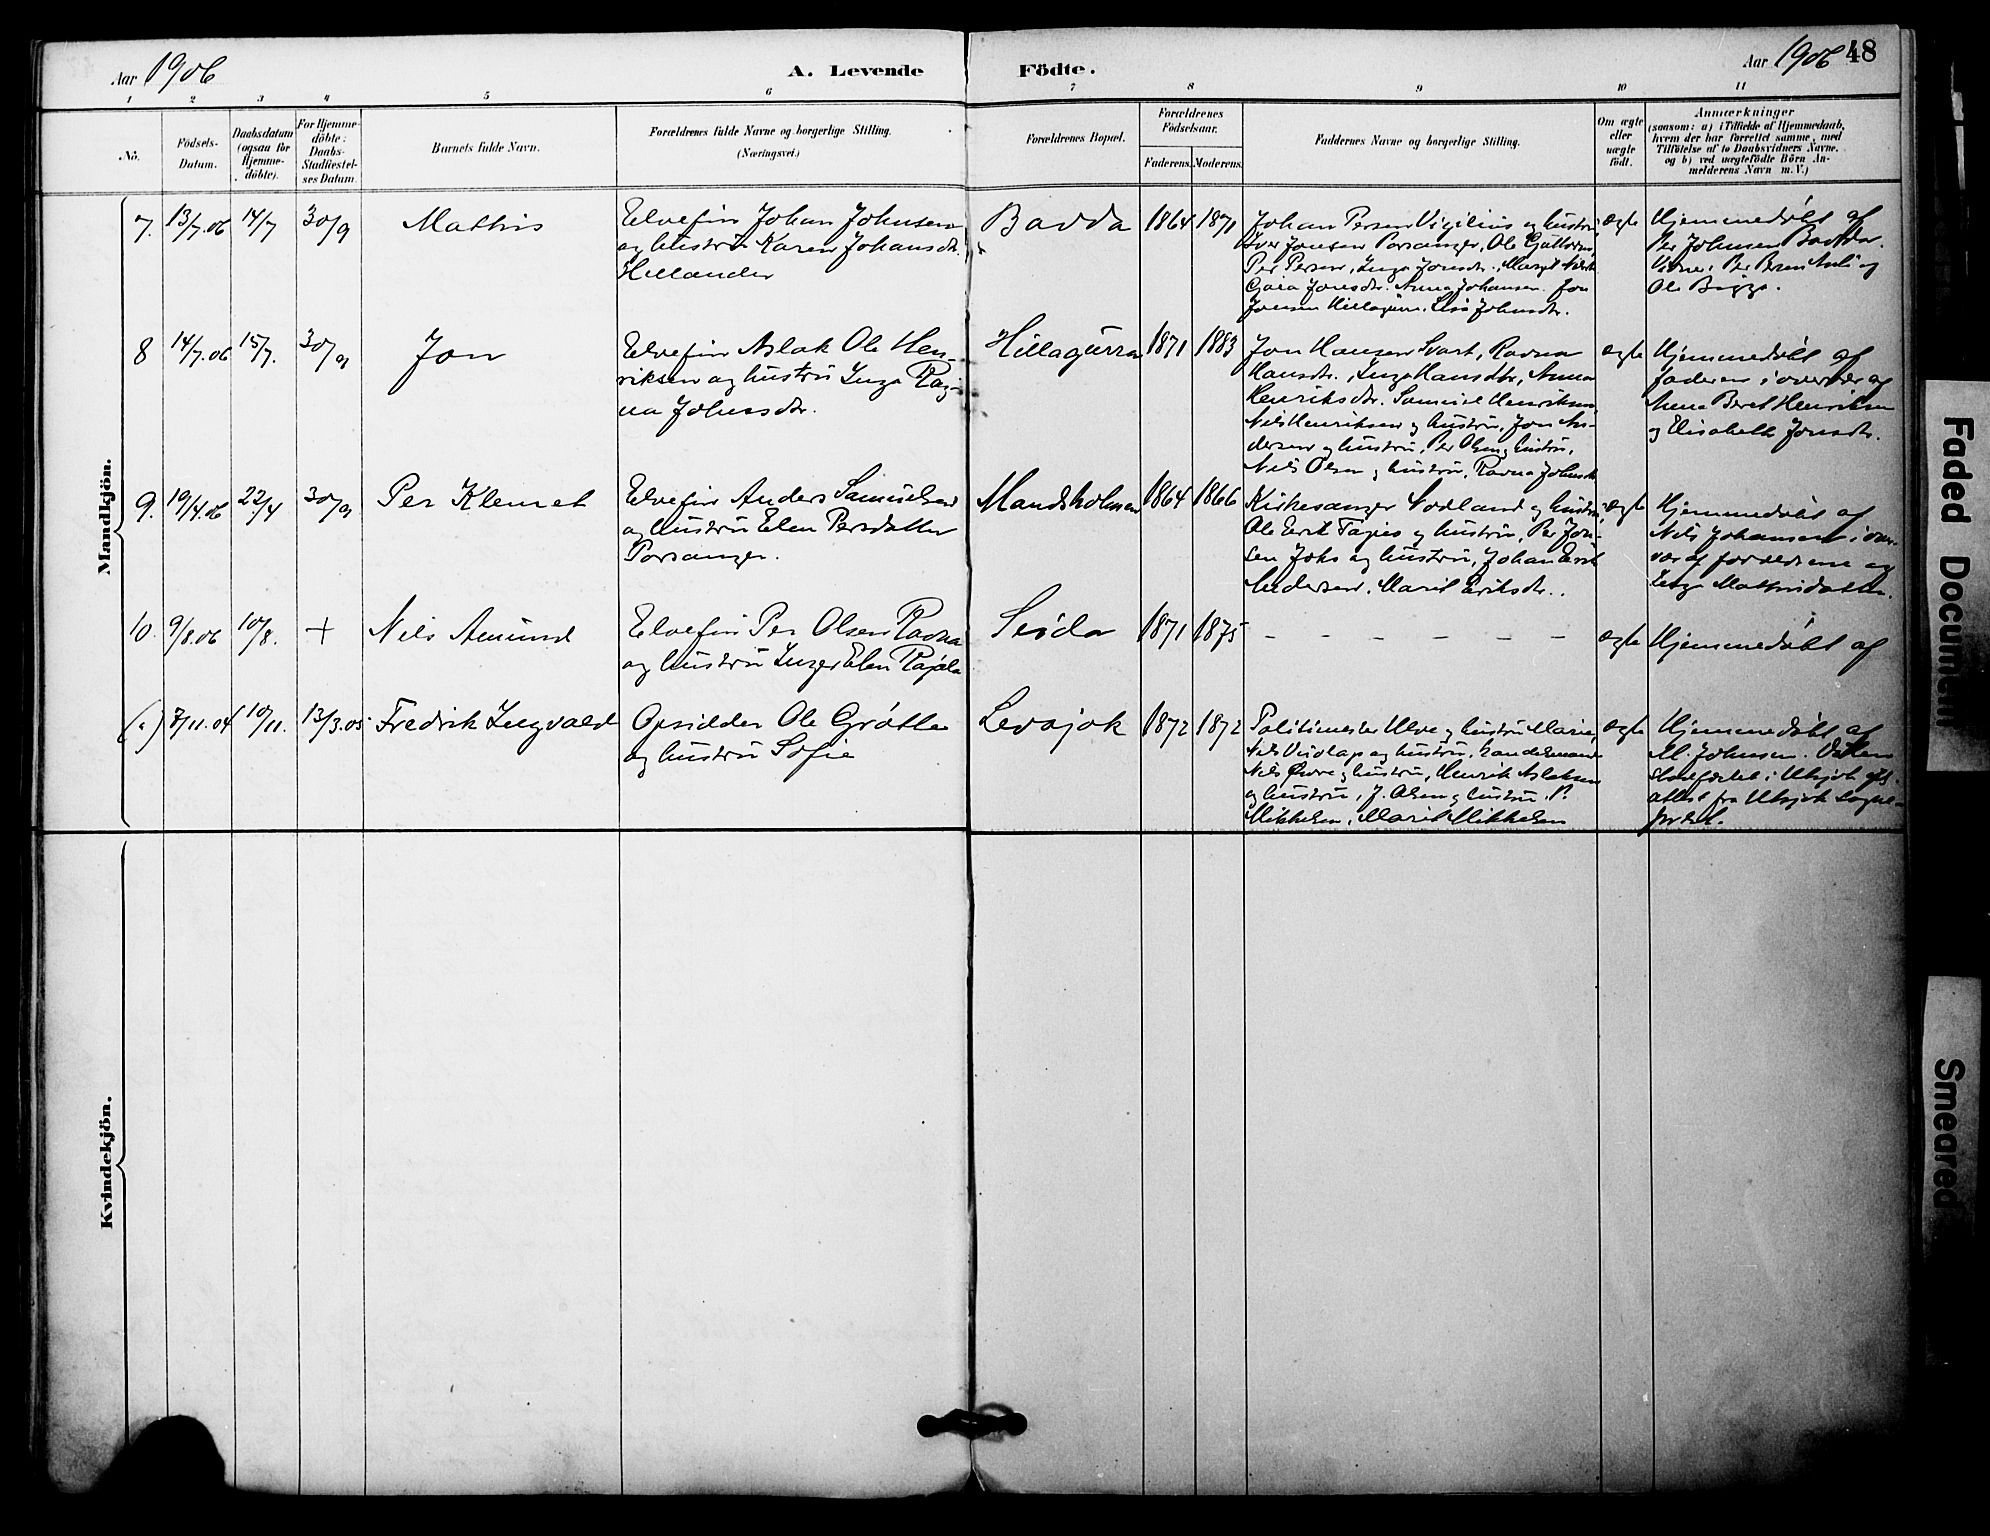 Aar 1906
A. Levende
Födte.
Aar 1906
48
1 2 3 4 5 6 7 8 9 10 11
No.
Födsels-
Datum.
Daabsdatum
(ogsaa for
Hjemme-
döbte).
For Hjemme-
döbte:
Daabs-
Stadfæstel-
ses Datum.
Barnets fulde Navn.
Forældrenes fulde Navne og borgerlige Stilling.
(Næringsvei.)
Forældrenes Bopæl.
Forældrenes
Födselsaar.
Faderens.
Moderens.
Faddernes Navne og borgerlige Stilling.
Om ægte
eller
uægte
födt.
Anmærkninger
(saasom: a) i Tilfælde af Hjemmedaab,
hvem der har forrettet samme, med
Tilföielse af to Daabsvidners Navne,
og b) ved uægtefödte Börn An-
melderens Navn m. V.)
Mandkjön.
7. 13/7.06 14/7 30/9 Mathis
Elvefin Johan Johnsen
og hustru Karen Johansdtr.
Hellander
Badda 1864 1871
Johan Persen Vigilius og hustru
Iver Jonsen Porsanger, Ole
Per Persen, Inga Jonsdtr., Marget
Jonsdtr. Anna Johansen. Jon
Jonsen Johnsdtr.
ægte
Hjemmedøbt af
Per Johnsen Badda.
og
Ole
8 14/7.06 15/7. 30/9 Jon
Elvefin Aslak Ole Hen-
riksen og hustru Inga Rag-
na Johnsdtr.
Hillagurra 1871 1883
Jon Hansen Svart, Ravna
Hansdtr., Inga Hansdtr, Anna
Henriksdtr. Samuel Henriksen,
Nils Henriksen og hustru, Jon An-
dersen og hustru, Per Olsen og hustru,
Nils Olsen og hustru, Ravna Johnsdtr
ægte
Hjemmedøbt af
faderen i overvær af
Anna Beret Henriksen
og Elisabeth Jonsdtr.
9. 19/4.06 22/4 30/9 Per Klemet
Elvefin Anders Samuelsen
og hustru Elen Persdatter
Porsanger.
Mandsholmen 1864 1866
Kirkesanger Nodland og hustru,
Ole Erik Tapio og hustru, Per Jon-
sen Joks og hustru, Johan Erik
Andersen, Marit Eriksdtr.
ægte
Hjemmedøbt af
Nils Johansen i over-
vær af forældrene og
Inga Mathisdatter.
10. 9/8.06 10/8. + Nils Amund
Elvefin Per Olsen Ravna
og hustru Inger Elen
Seida 1871 1875
– – – – – – –
ægte
Hjemmedøbt af
8/11.04 10/11. 13/3.05 Fredrik Ingvald
Opsidder Ole Grøtte
og hustru Sofie
Levajok 1872 1872
Politimester Ulve og hustru Marie,
Nils og hustru, Landsmand
Nils og hustru, Henrik Aslaksen
og hustru, J. Olsen og hustru. P.
Mikkelsen, Marit Mikkelsen
ægte
Hjemmedøbt af
M. Johnsen.
Stadfæstet i Utsjok
attest fra Utsjok Sogne-
prest.
Kvindekjön.
Faded Document
Smeared